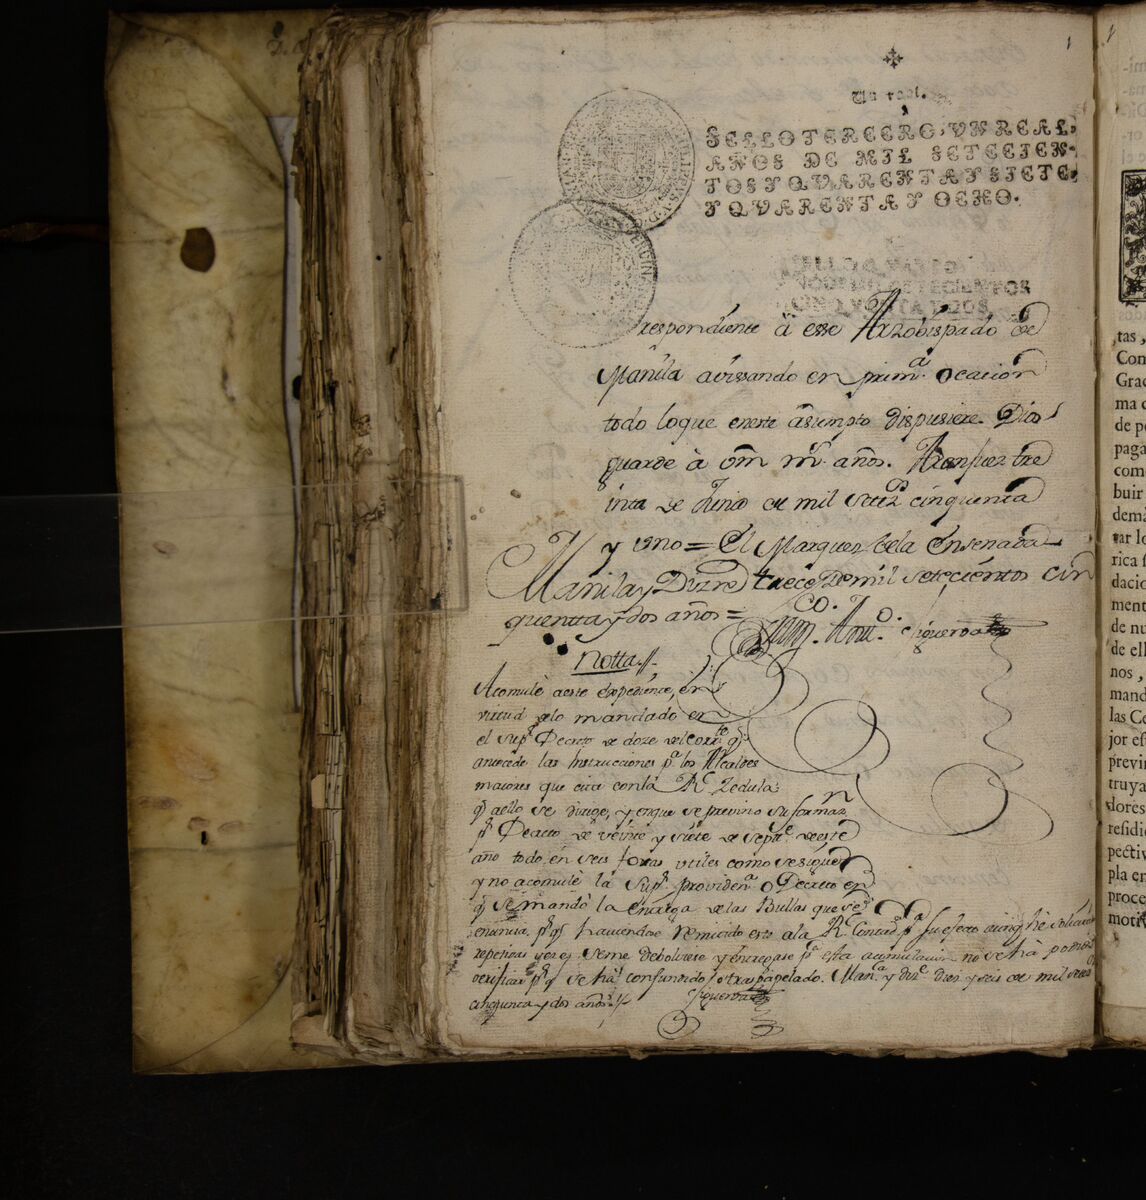 1
Un real.
SELLO TERCERO, UN REAL,
AÑOS DE MIL SETECIEN-
TOS Y QVARENTA Y SIETE,
Y QVARENTA Y OCHO.
SETECIENTOS
CINQVENTA Y DOS
respondiente â esse Arzobispado de
Manila avissando en prim.ª ocacion
todo loque eneste asumpto dispusiere Dios
guarde à Vm m.s años. Aranjuez tre
inta de Junio de mil setez.s cinquenta
y uno = El Marques dela Ensenada
Manila y Diz.re trece de mil setecientos cin
quenta y dos años =
Ant.º Figueroa
Notta //.
Acomulè aeste expediente, en
virtud delo mandado en
el sup.r Decreto de doze del corr.te q.e
antecede las Instrucciones p.ª los Alcaldes
maiores que cita conla R.l Zedula
q.e aello se dirige, y enque se previno su formaz.n
p.r Decreto de veinte y siete de sept.e de este
año todo en seis foxas utiles como se siguen
y no acomulè la sup.r providen.ª o Decreto en
q.e se mandò la entrega delas Bullas que se
enuncia, p.r q.e haviendose remitido esto ala R.l Contad.ª p.ª su efecto aunq.e hè solicitado
repetidas vezes seme debolviese y entregase p.ª esta acumulacion no se hà podido
verificar p.r q.e se hà confundido, o traspapelado. Man.ª y diz.e diez y seis de mil setez.s
cinquenta y dos años //
Figueroa
tas,
Con
Grac
ma
de p
paga
com
buir
demà
var lo
rica
dacio
ment
de nu
de ell
nos,
mand
las Ce
jor
previ
truya
dores
residi
pectiv
pla en
proce
motiv